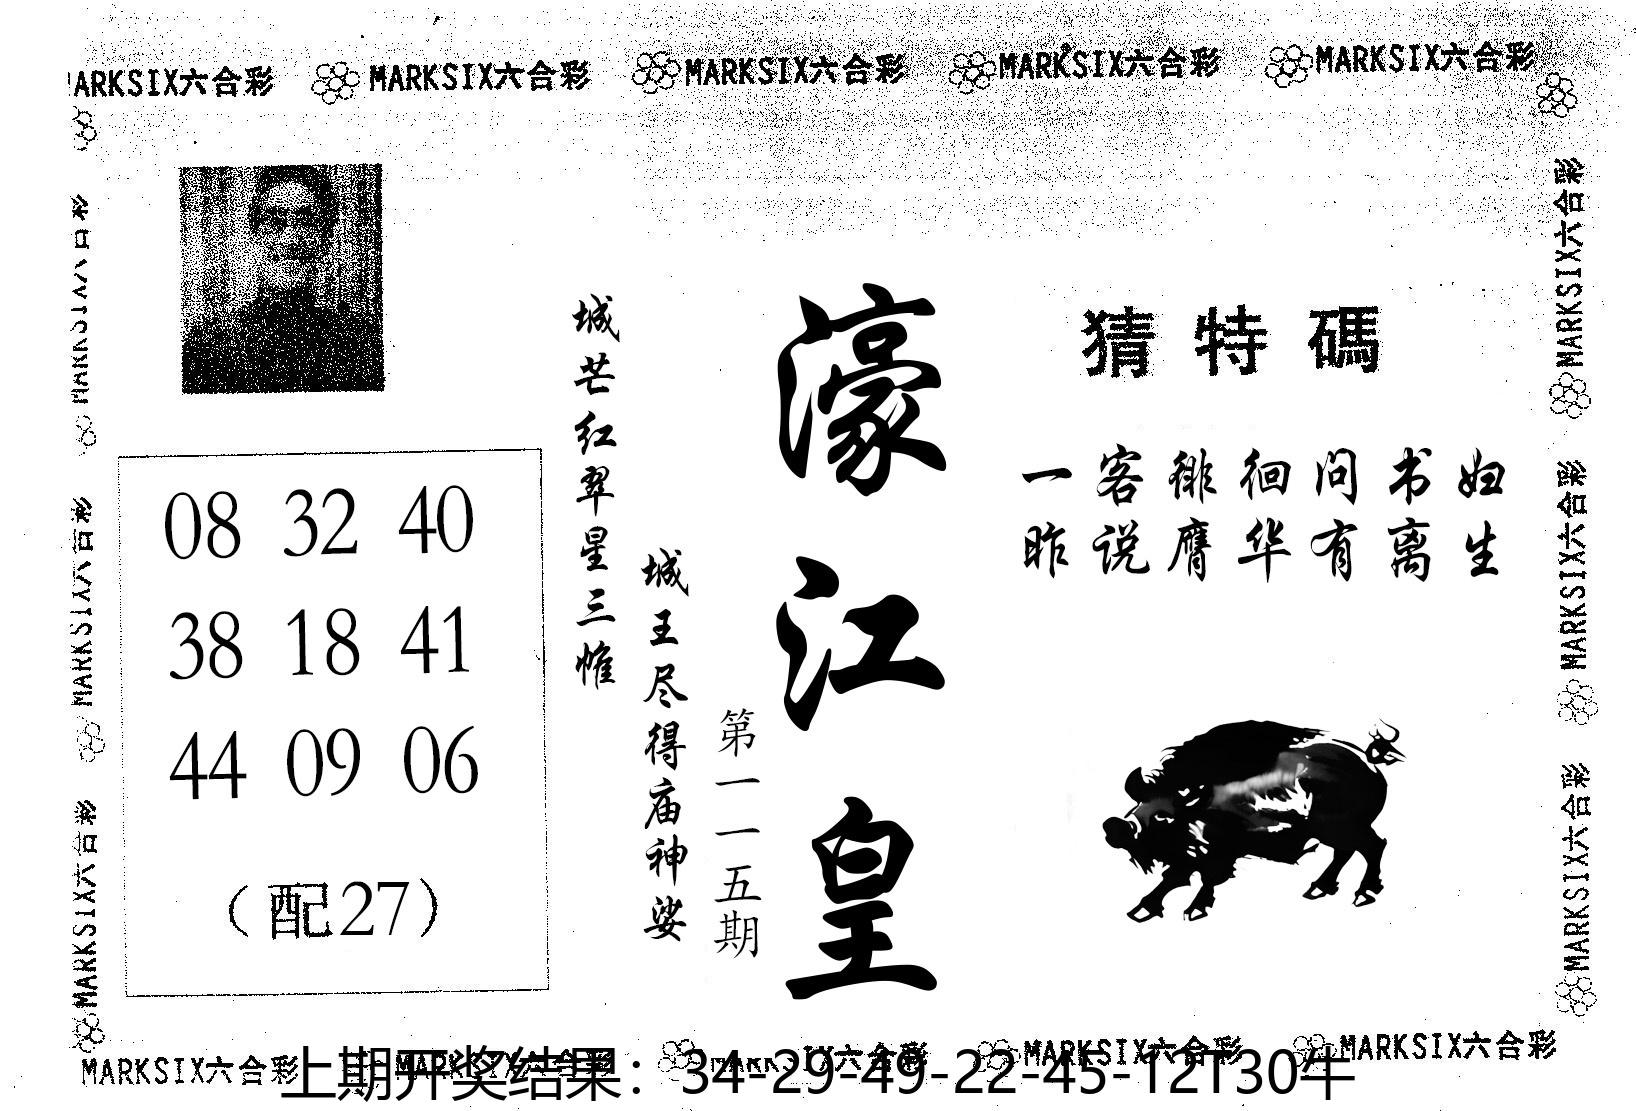 MARKSIX六合彩 MARKSIX六合彩 MARKSIX六合彩 MARKSIX六合彩 MARKSIX六合彩
猜特碼
一客徘徊问书妇
昨说膺华有离生
濠江皇
第一一五期
城王尽得庙神娑
城芒红翠星三惟
08 32 40
38 18 41
44 09 06
（配27）
MARKSIX六合彩
MARKSIX六合彩
MARKSIX六合彩
MARKSIX六合彩
MARKSIX六合彩
MARKSIX六合彩
MARKSIX六合彩 MARKSIX六合彩 MARKSIX六合彩 MARKSIX六合彩 MARKSIX六合彩
上期开奖结果：34-29-49-22-45-12T30牛